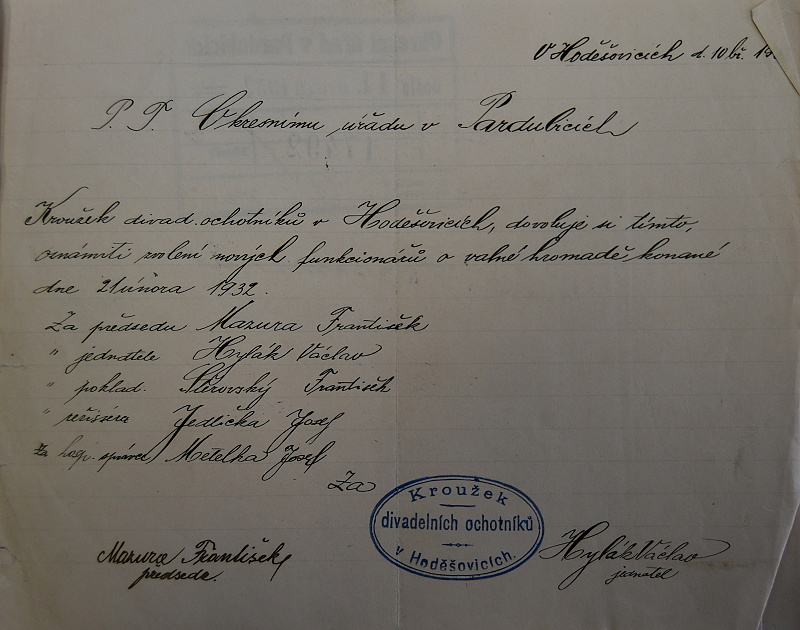 V Hoděšovicích d. 10 bř. 19
P. T. Okresnímu úřadu v Pardubicích
Kroužek divad. ochotníků v Hoděšovicích, dovoluje si tímto,
oznámiti zvolení nových funkcionářů o valné hromadě, konané
dne 21 února 1932.
Za předsedu Mazura František
" jednatele Hylák Václav
" poklad. František
" režiséra Jedlička Josef
Za hosp. správce Metelka Josef
Za
Kroužek
divadelních ochotníků
v Hoděšovicích.
Mazura František
předseda.
Hylák Václav
jednatel